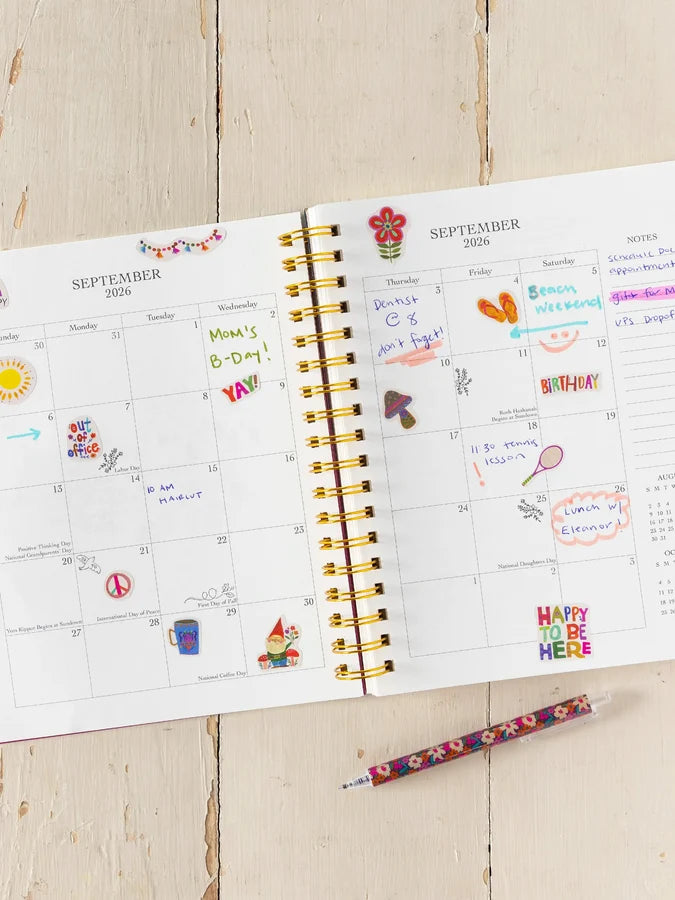 SEPTEMBER
2026
Monday
Tuesday
Wednesday
30
31
1
2
MOM'S
B-DAY!
YAY!
6
7
8
9
out
of
office
Labor Day
13
14
15
16
10 AM
HAIRCUT
Positive Thinking Day
National Grandparents' Day
20
21
22
23
Yom Kippur Begins at Sundown
International Day of Peace
First Day of Fall
27
28
29
30
National Coffee Day
SEPTEMBER
2026
Thursday
Friday
Saturday
3
4
5
Dentist
@ 8
don't forget!
Beach
weekend
10
11
12
Rosh Hashanah
Begins at Sundown
BIRTHDAY
17
18
19
11:30 tennis
lesson
!
24
25
26
National Daughters Day
Lunch w/
Eleanor!
1
2
3
HAPPY
TO BE
HERE
NOTES
schedule
appointment
gift for
UPS Dropoff